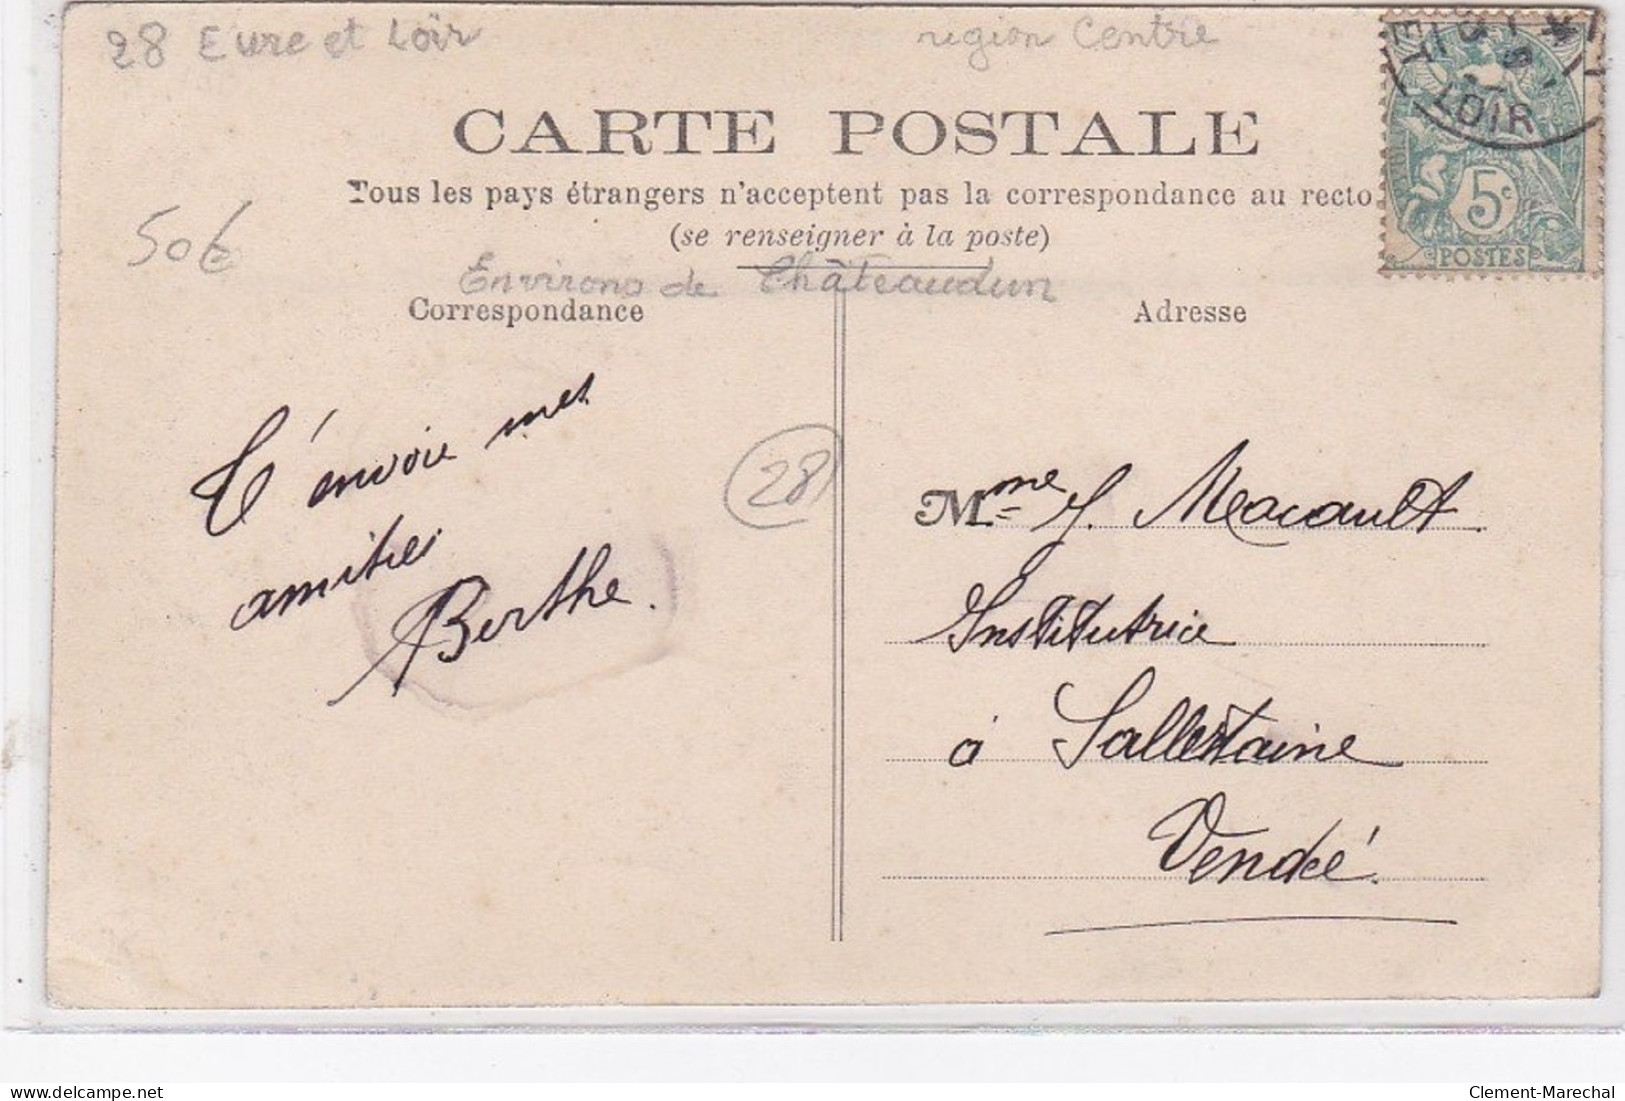 28 Eure et Loir
région Centre
CARTE POSTALE
Tous les pays étrangers n'acceptent pas la correspondance au recto
(se renseigner à la poste)
50€
Environs de Châteaudun
Correspondance
Adresse
LOIR
5c
POSTES
T'envoie mes
amitiés
Berthe.
28
Mme J. Macault
Institutrice
à Sallertaine
Vendée.
delcampe.net
Clement-Marechal